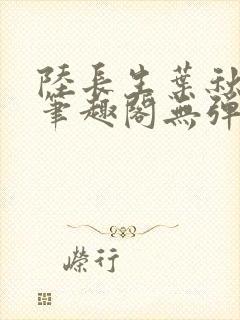 陸長生葉秋
筆趣閣無彈
嶸行